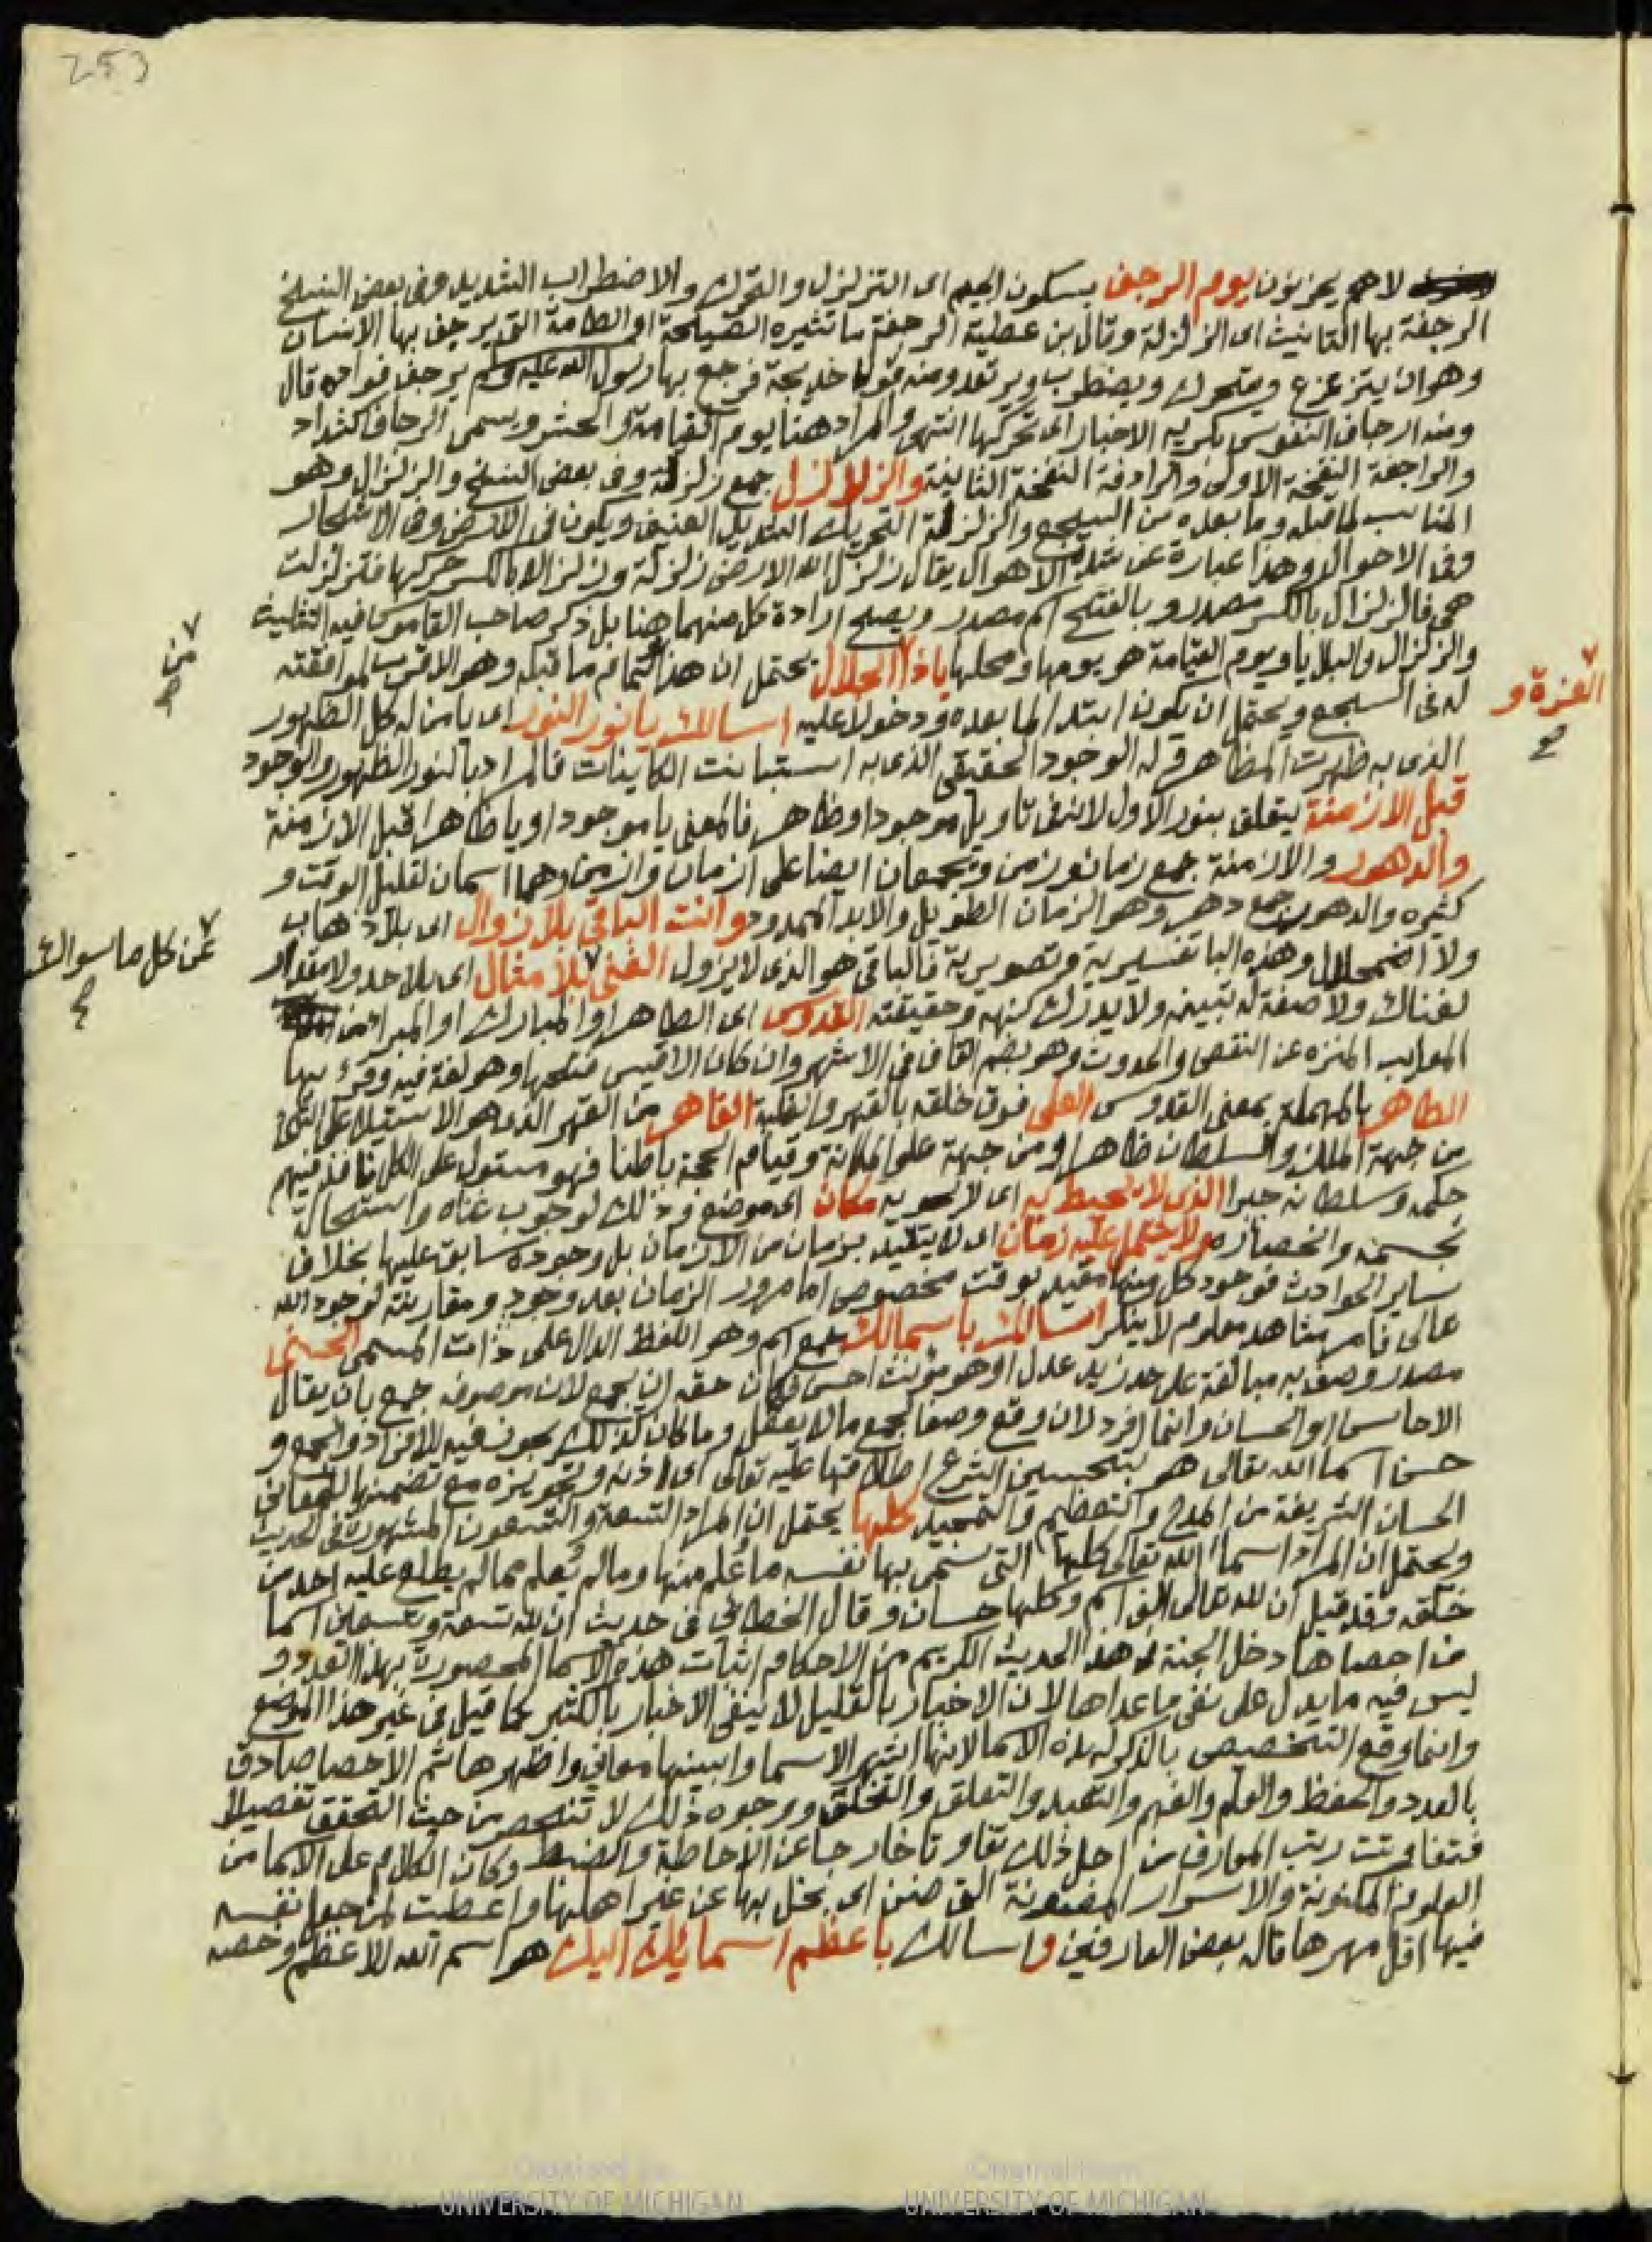 253
لا هم يحزنون يوم الرجف بسكون الجيم اى التزلزل والتحرك والاضطراب الشديد وفى بعض النسخ
الرجفة بها التانيث اى الزلزلة وقال بن عطية الرجفة ما تثيره الصيحة او الطامة التى يرجف بها الانسان
وهو ان يتزعزع ويتحرك ويضطرب ويرتعد ومنه قول خديجة فرجع بها رسول الله عليه وسلم يرجف فواده قال
ومنه ارجاف النفوس بكريه الاخبار اى تحركها انتهى والمراد هنا يوم القيامة والحشر ويسمى الرجاف كشداد
والراجفة النفخة الاولى والرادفة النفخة الثانية والزلازل جمع زلزلة وفى بعض النسخ والزلزال وهو
المناسب لما قبله وما بعده من السجع والزلزلة التحريك الشديد العنيف ويكون فى الارض وفى الاشجار
وفى الاحوال وهذا عبارة عن شدة الاهوال يقال زلزل الله الارض زلزلة وزلزالا بالكسر حركها فتزلزلت
هى فالزلزال بالكسر مصدر و بالفتح اسم مصدر ويصلح ارادة كل منهما هنا بل ذكر صاحب القاموس فيه التثليث
من
والزلزال والبلايا ويوم القيامة هو يومها ومحلها ياذا الجلال يحتمل ان هذا تمام ما قبله وهو الاقرب لموافقته
العزة و
له فى السجع ويحتمل ان يكون ابتداء لما بعده ودخولا عليه اسالك يا نور النور اى يا من له كل الظهور
الذى به ظهرت المظاهر وله الوجود الحقيقى الذى به استبانت الكاينات فالمراد بالنور الظهور والوجود
قبل الازمنة يتعلق بنور الاول لانه فى تاويل موجود او ظاهر فالمعنى يا موجودا او يا ظاهرا قبل الازمنة
والدهور والازمنة جمع زمان وزمن ويجمعان ايضا على ازمان وازمن وهما اسمان لقليل الوقت و
كثيره والدهور جمع دهر وهو الزمان الطويل والابد الممدود وانت الباقى بلا زوال اى بلا ذهاب
عن كل ما سواك
ولا اضمحلال وهذه البا تفسيرية وتصويرية فالباقى هو الذى لا يزول الغنى بلا مثال اى بلا حد ولا مقدار
لغناك ولا صفة له تبينه ولا يدرك كنهه وحقيقته القدوس اى الطاهر او المبارك او المبرا من
المعايب المنزه عن النقص والحدوث وهو بضم القاف فى الاشهر وان كان الاقيس فتحها وهو لغة فيه وقرئ بها
الطاهر بالمهملة بمعنى القدوس العلى فوق خلقه بالقهر والغلبة القاهر من القهر الذى هو الاستيلاء على الشئ
من جهة الملك والسلطان ظاهرا ومن جهة علو المكانة وقيام الحجة باطنا فهو مستول على الكل نافذ فيهم
حكمه وسلطانه جبرا الذى لا يحيط به اى لا يحويه مكان اى موضع وذلك لوجوب غناه واستحالة
تجسمه وانحصاره ولا يشتمل عليه زمان اى لا يتقيد بزمان من الازمان بل وجوده سابق عليها بخلاف
ساير الحوادث فوجود كل منها مقيد بوقت مخصوص اما مرور الزمان بعد وجود ومقارنته لوجود الله
تعالى فامر مشاهد معلوم لا ينكر اسالك باسمايك جمع اسم وهو اللفظ الدال على ذات المسمى الحسنى
مصدر وصف به مبالغة على حد زيد عدل او هو مونث احسن فكان حقه ان يجمع لان موصوفه جمع بان يقال
الاحاسن او الحسان وانما افرد لان وقع وصفا لجمع ما لا يعقل وما كان كذلك يجوز فيه الافراد والجمع و
حسن اسما الله تعالى هو بتحسين الشرع اطلاقها عليه تعالى اى اذنه وتجويزه مع تضمنها للمعانى
الحسان الشريفة من المدح والتعظيم والتمجيد كلها يحتمل ان المراد التسعة والتسعون المشهورة فى الحديث
ويحتمل ان المراد اسما الله تعالى كلها التى سمى بها نفسه ما عُلم منها وما لم يُعلم مما لم يطلع عليه احد من
خلقه وقد قيل ان لله تعالى الف اسم وكلها حسان وقال الخطابى فى حديث ان لله تسعة وتسعين اسما
من احصاها دخل الجنة فى هذا الحديث الكريم من الاحكام اثبات هذه الاسما المحصورة بهذا العدد و
ليس فيه ما يدل على نفى ما عداها لان الاخبار بالقليل لا ينفى الاخبار بالكثير كما قيل فى غير هذا الموضع
وانما وقع التخصيص بالذكر لهذه الاسما لانها اشهر الاسما وابينها معانى واظهرها ثم الاحصا صادق
بالعدد والحفظ والعلم والفهم والتعبد والتعلق والتخلق ووجوه ذلك لا تنحصر من حيث التحقق تفصيلا
فتفاوتت رتب المعارف من اجل ذلك تفاوتا خارجا عن الاحاطة والضبط وكان الكلام على الاسما من
العلوم المكنونة والاسرار المضنونة التى ضنن اى بخل بها عن غير اهلها واعطيت لمن جعل نفسه
فيها اقل مهرها قاله بعض العارفين واسالك باعظم اسمايك اليك هو اسم الله الاعظم وخصه